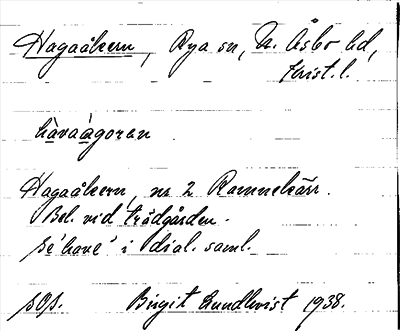 Hagaåkern, Rya sn, N. Åsbo hd,
Krist. l.
hàvaágoran
Hagaåkern, nr 2 Rammekärr.
Bel. vid trädgården.
se 'have' i dial. saml.
sog. Birgit Lundkvist 1938.